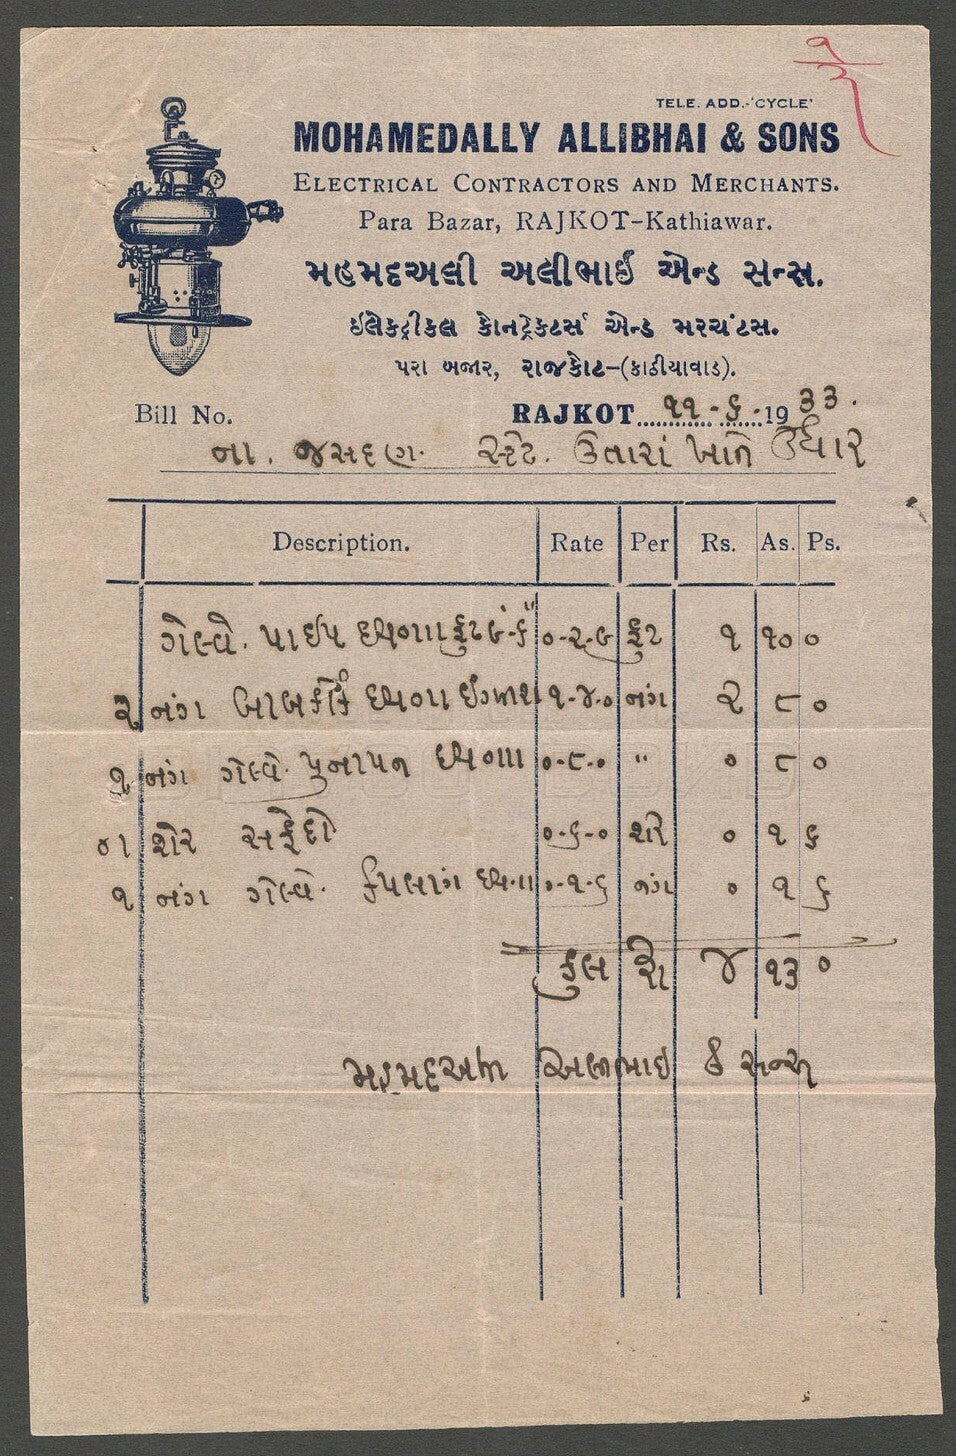 ૧
૩
TELE. ADD.-'CYCLE'
MOHAMEDALLY ALLIBHAI & SONS
ELECTRICAL CONTRACTORS AND MERCHANTS.
Para Bazar, RAJKOT-Kathiawar.
મહમદઅલી અલીભાઈ એન્ડ સન્સ.
ઇલેક્ટ્રીકલ કોનટ્રેક્ટર્સ એન્ડ મરચંટસ.
પરા બજાર, રાજકોટ-(કાઠીયાવાડ).
Bill No. RAJKOT ૧૧-૬-1933.
ના. જસદણ સ્ટેટ. ઉતારાં ખાતે ઉધાર
Description. Rate Per Rs. As. Ps.
ગેલ્વે. પાઈપ ફુટ ૦-૨-૯ ફુટ ૧ ૧૦ ૦
૨ નંગ બીબકોક ૧-૪-૦ નંગ ૨ ૮ ૦
૧ નંગ ગેલ્વે. ૦-૮-૦ " ૦ ૮ ૦
૦। શેર સફેદો ૦-૬-૦ શેર ૦ ૧ ૬
૧ નંગ ગેલ્વે. ૦-૧-૬ નંગ ૦ ૧ ૬
કુલ રૂા ૪ ૧૩ ૦
મહમદઅલી અલીભાઇ એન્ડ સન્સ